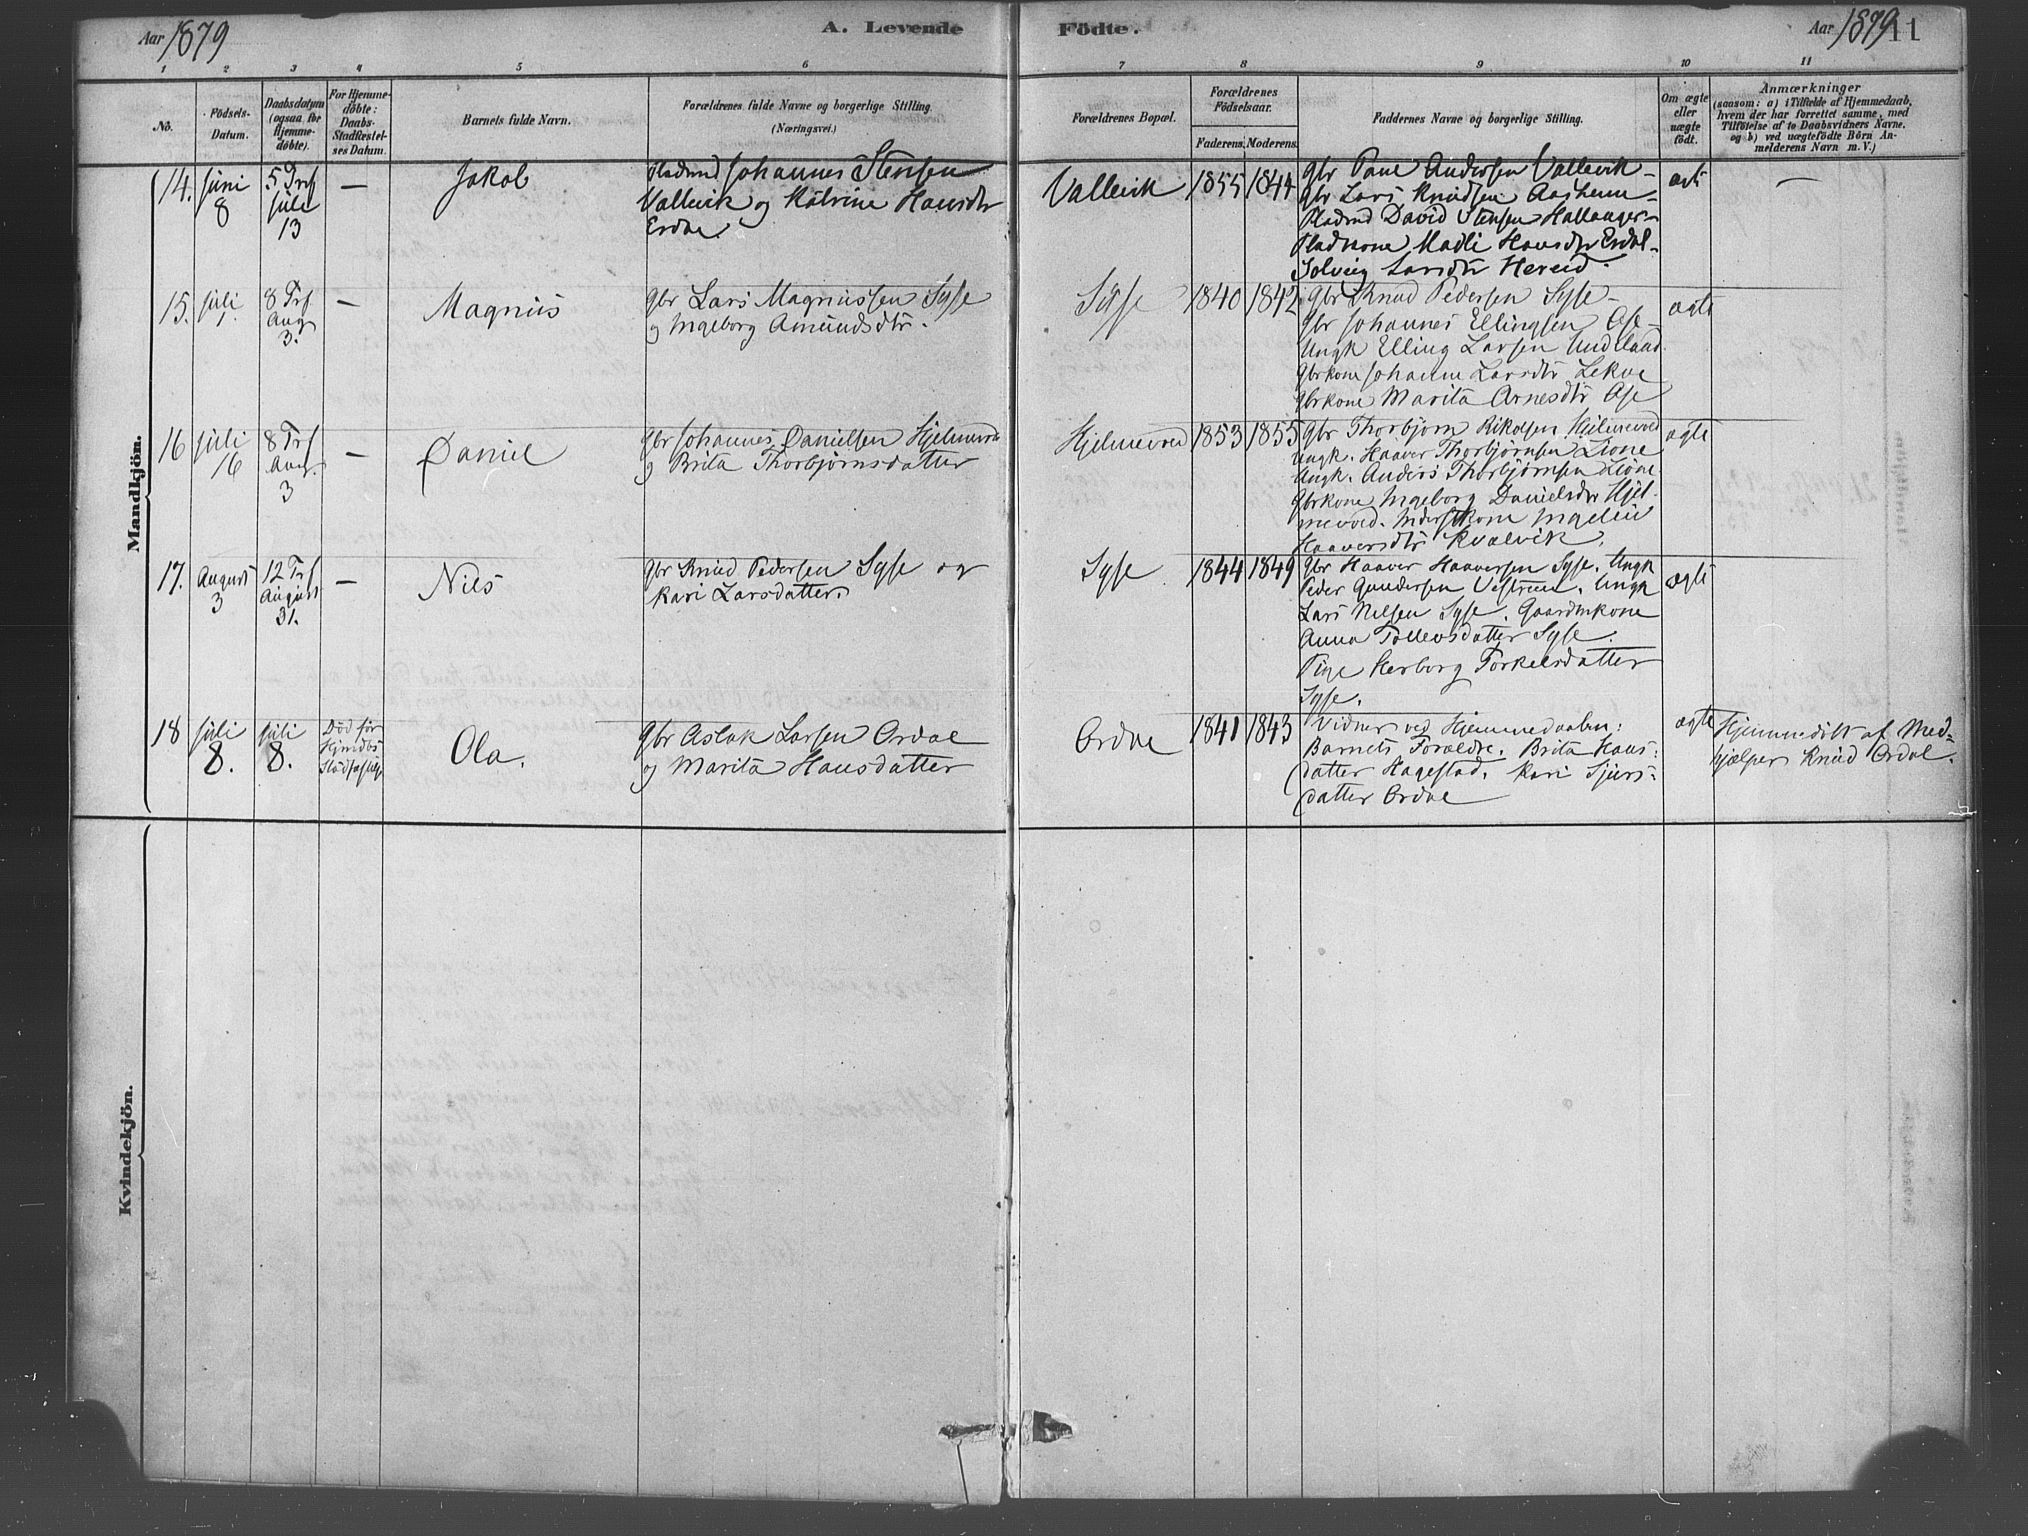 Aar 1879 A. Levende Födte. Aar 1879 11
1 2 3 4 5 6 7 8 9 10 11
No.
Födsels-
Datum.
Daabsdatum
(ogsaa for
Hjemme-
döbte).
For Hjemme-
döbte:
Daabs-
Stadfæstel-
ses Datum.
Barnets fulde Navn.
Forældrenes fulde Navne og borgerlige Stilling.
(Næringsvei.)
Forældrenes Bopæl.
Forældrenes
Födselsaar.
Faderens. Moderens.
Faddernes Navne og borgerlige Stilling.
Om ægte
eller
uægte
födt.
Anmærkninger
(saasom: a) i Tilfælde af Hjemmedaab,
hvem der har forrettet samme, med
Tilföielse af to Daabsvidners Navne.
og b) ved uægtefödte Börn An-
melderens Navn m. V.)
Mandkjön.
14. Juni
8
5 Trf
Juli
13
—
Jakob
Pladsmd Johannes Stensen
Vallevik og Katrine Hansdtr
Erdae
Vallevik 1855 1844
Gbr Paul Andersen Vallevik –
Gbr Lars Knudsen Aasheim –
Pladsmd David Stensen Hallanger –
Pladskone Madli Hansdtr Erdal –
Solveig Larsdtr Hereid.
ægte —
15. Juli
1.
8 Trf
Aug
3.
—
Magnus
Gbr Lars Magnussen Syse
og Ingeborg Amundsdtr.
Syse 1840 1842
Gbr Knud Pedersen Syse –
Gbr Johannes Ellingsen Ose –
Ungk Elling Larsen Undeland
Gbrkone Johanne Larsdtr Lekve
Gbrkone Marita Arnesdtr Ose
ægte
16 Juli
16
8 Trf
Aug.
3
—
Daniel
Gbr Johannes Danielsen Hjelmevod
og Brita Thorbjørnsdatter
Hjelmevod 1853 1855
Gbr Thorbjørn Rikolsen Hjelmevod
Ungk. Haaver Thorbjørnsen Lione
Ungk. Anders Thorbjørnsen Lione
Gbrkone Ingeborg Danielsdtr Hjel-
mevod. Inderstkone Ingelin
Haaversdtr Kvalvik.
ægte
17. August
3
12 Trf
August
31.
—
Nils
Gbr Knud Pedersen Syse og
Kari Larsdatter.
Syse 1844 1849
Gbr Haaver Haaversen Syse. Ungk
Peder Gundersen Vestreim. Ungk
Lars Nilsen Syse. Gaardmkone
Anna Tollevsdatter Syse.
Pige Herborg Torkelsdatter
Syse.
ægte
18 Juli
8.
Juli
8.
Død før
Hjmdbs
Stadfæstelse
Ola.
Gbr Aslak Larsen Ordal
og Marita Hansdatter
Ordal 1841 1843
Vidner ved Hjemmedaaben:
Barnets Forældre. Brita Hans-
datter Hagestad. Kari Sjurs-
datter Ordal
ægte
Hjemmedøbt af Med-
hjælper Knud Ordal.
Kvindekjön.